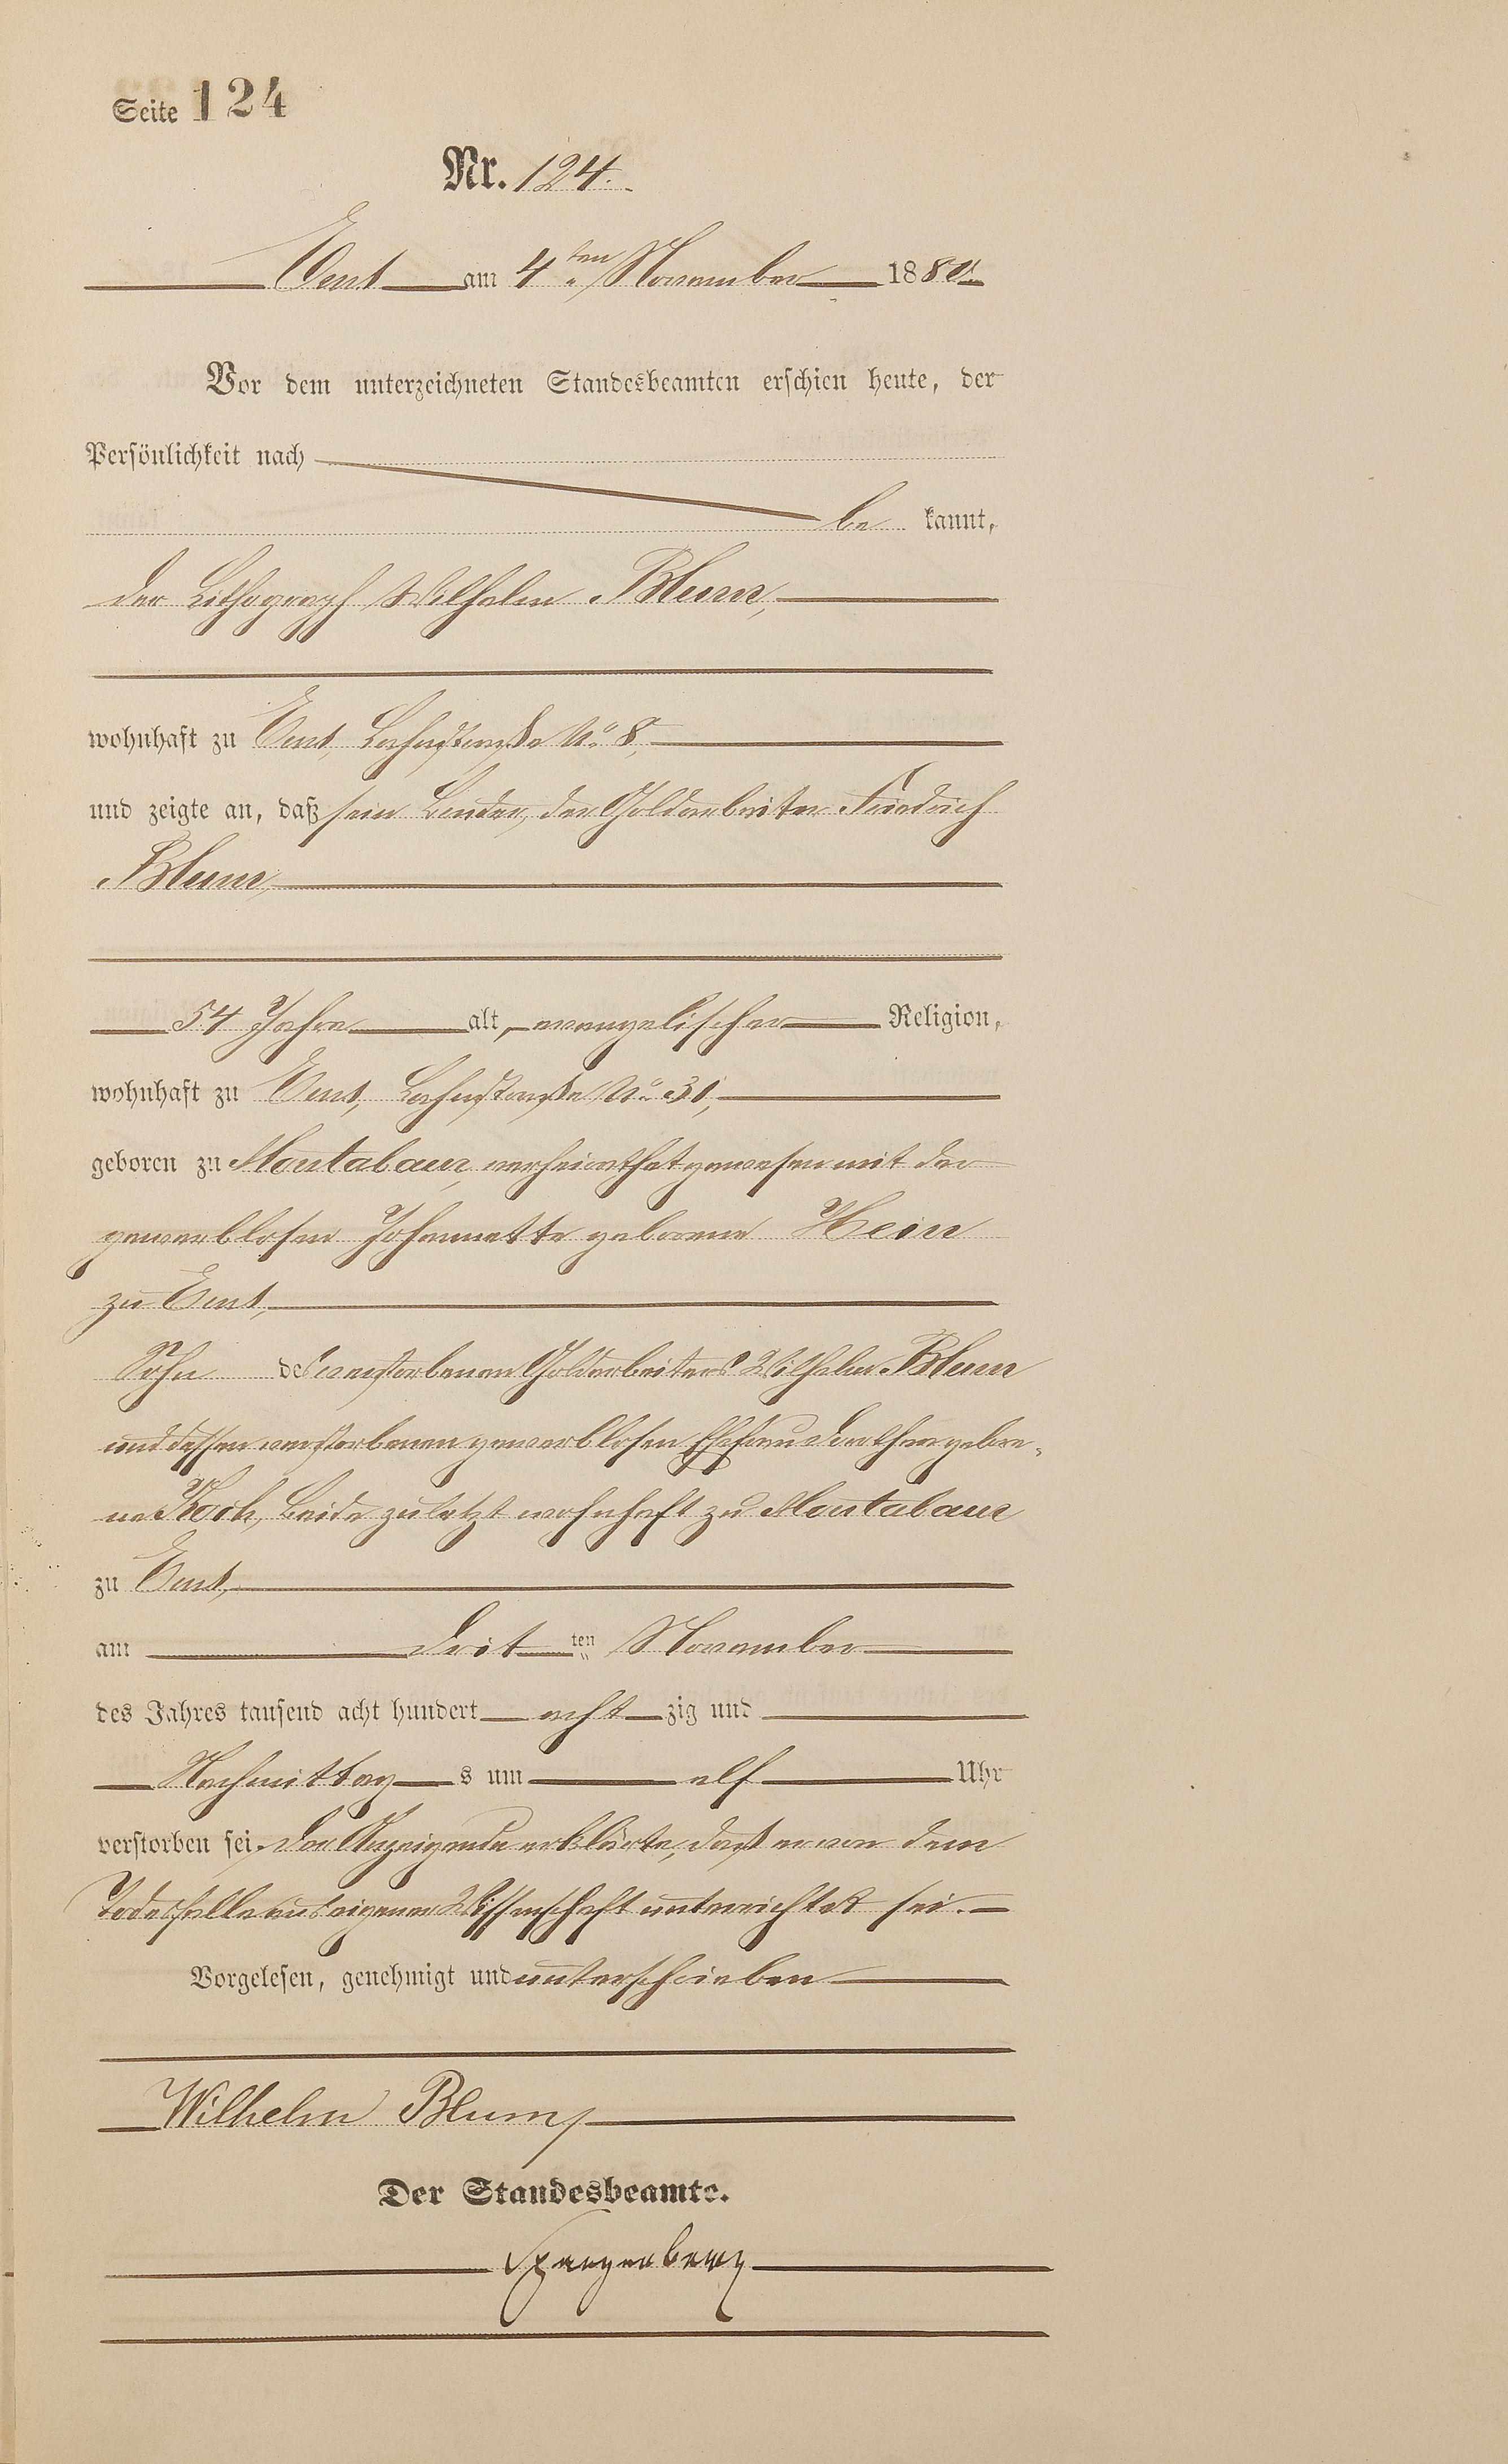 Seite 124
Nr. 124.
Ems am 4ten November 1880.
Vor dem unterzeichneten Standesbeamten erschien heute, der
Persönlichkeit nach
be kannt,
der Lithograph Wilhelm Blum,
wohnhaft zu Ems, Lahnstraße No. 8,
und zeigte an, daß sein Bruder, der Goldarbeiter Friedrich
Blum,
54 Jahre alt, evangelischer Religion,
wohnhaft zu Ems, Lahnstraße No. 31,
geboren zu Montabaur, verheirathet gewesen mit der
gewerblosen Johannette geborene Hein
zu Ems,
Sohn des verstorbenen Goldarbeiters Wilhelm Blum
und dessen verstorbenen gewerblosen Ehefrau Dorothea gebore-
ne Koch, beide zuletzt wohnhaft zu Montabaur
zu Ems,
am drit ten November
des Jahres tausend acht hundert acht zig und
Nachmittag s um elf Uhr
verstorben sei. Der Anzeigende erklärte, daß er von dem
Todesfalle aus eigener Wissenschaft unterrichtet sei.
Vorgelesen, genehmigt und unterschrieben
Wilhelm Blum
Der Standesbeamte.
Spangenberg